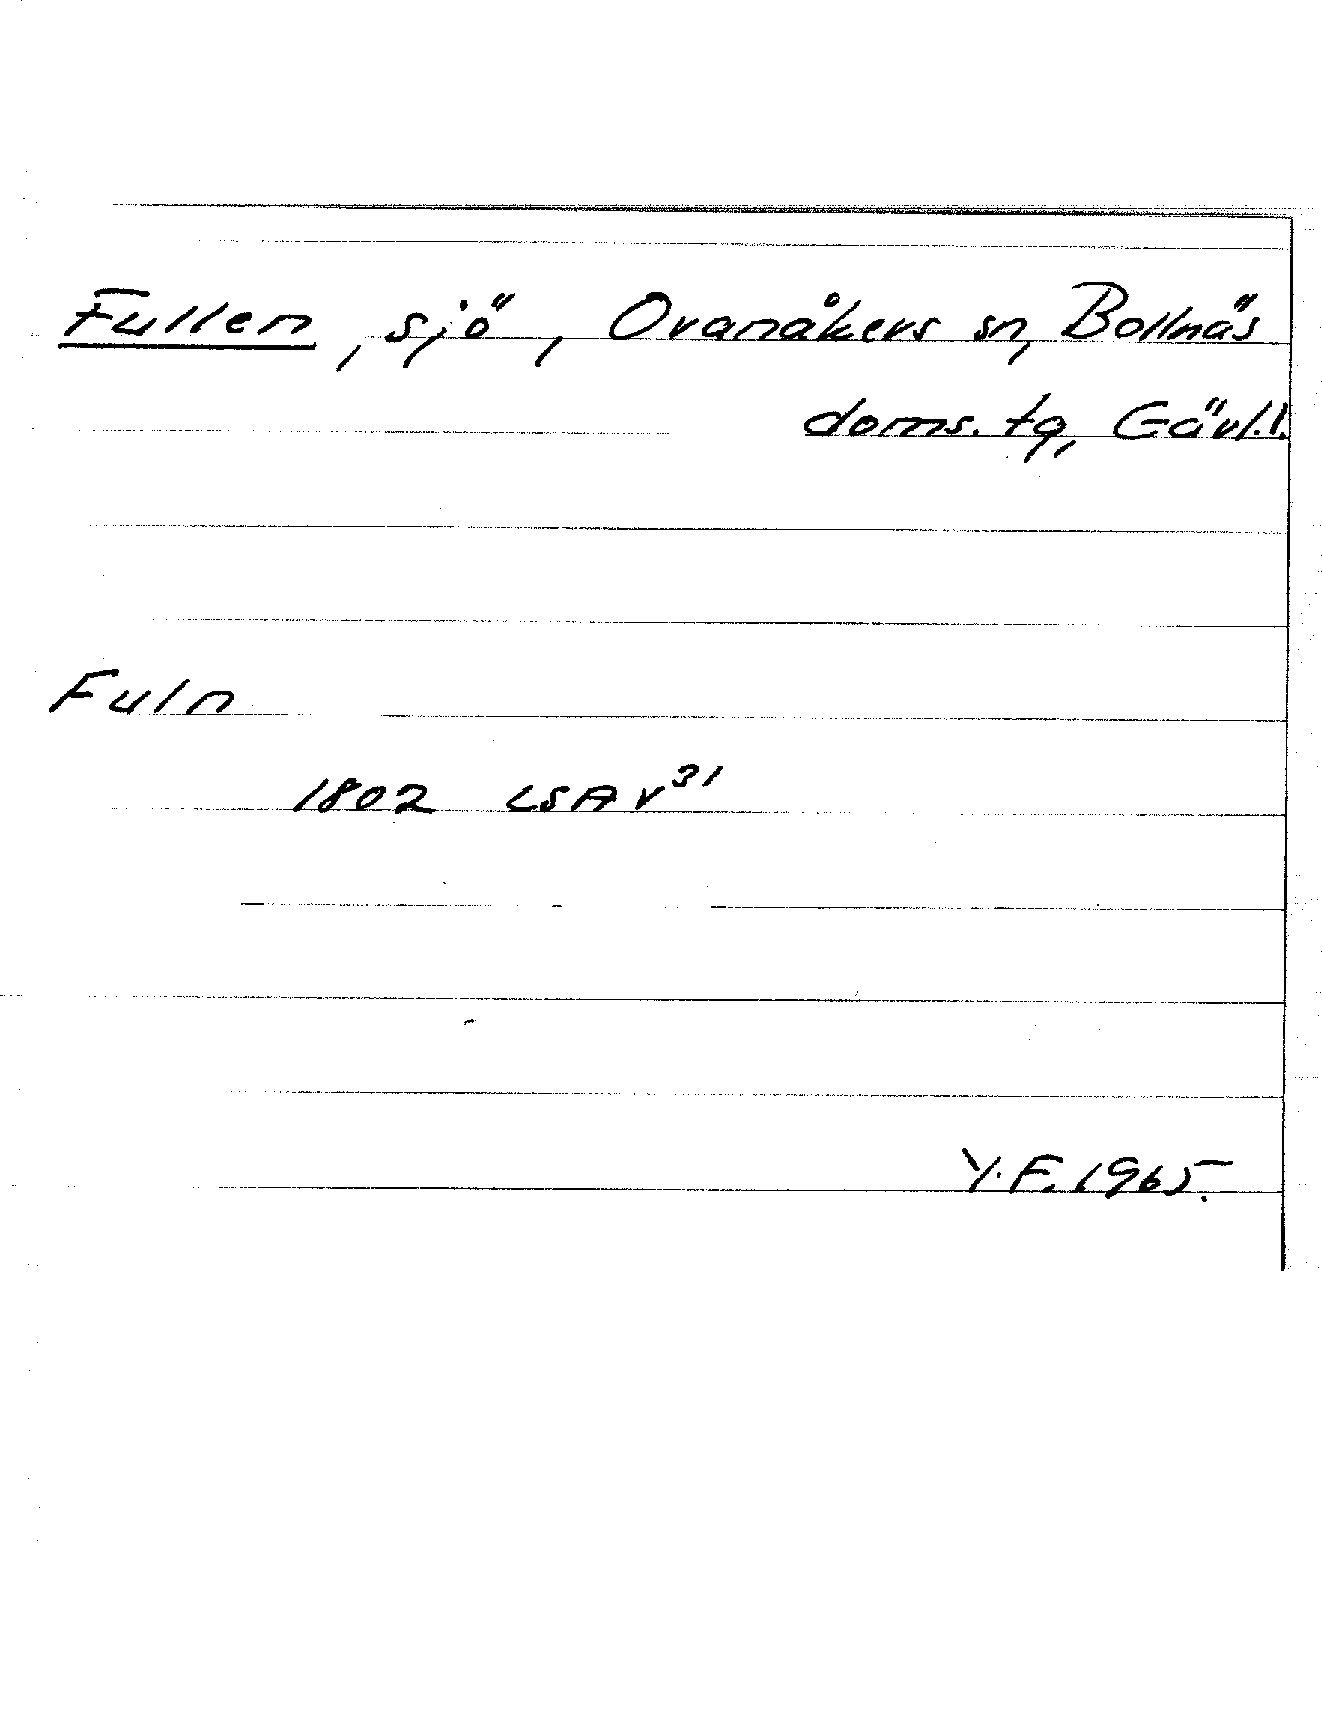 Fullen, sjö, Ovanåkers sn, Bollnäs
doms. tg, Gävl.l.
Fuln
1802 LSA v³¹
Y.F. 1965.